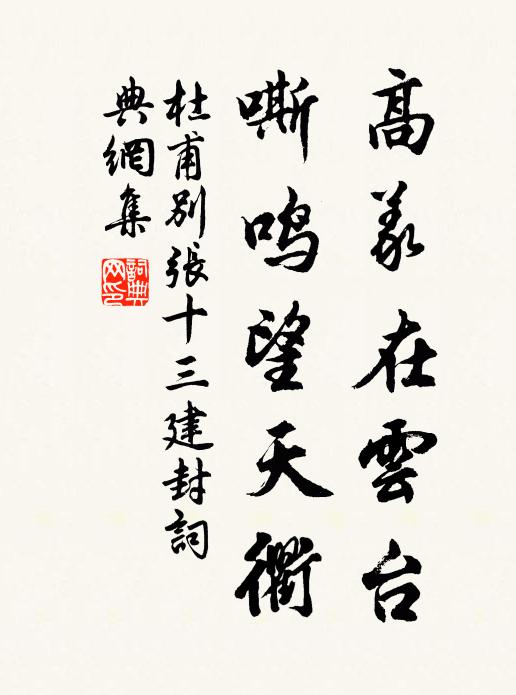 高義在雲台
嘶鳴望天衢
杜甫別張十三建封詞
典網集
詞典
网印